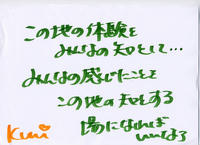 この地の体験を
みんなの知として…
みんなの感じたことを
この地の知とする
場になれば
いいなぁ
Kuni